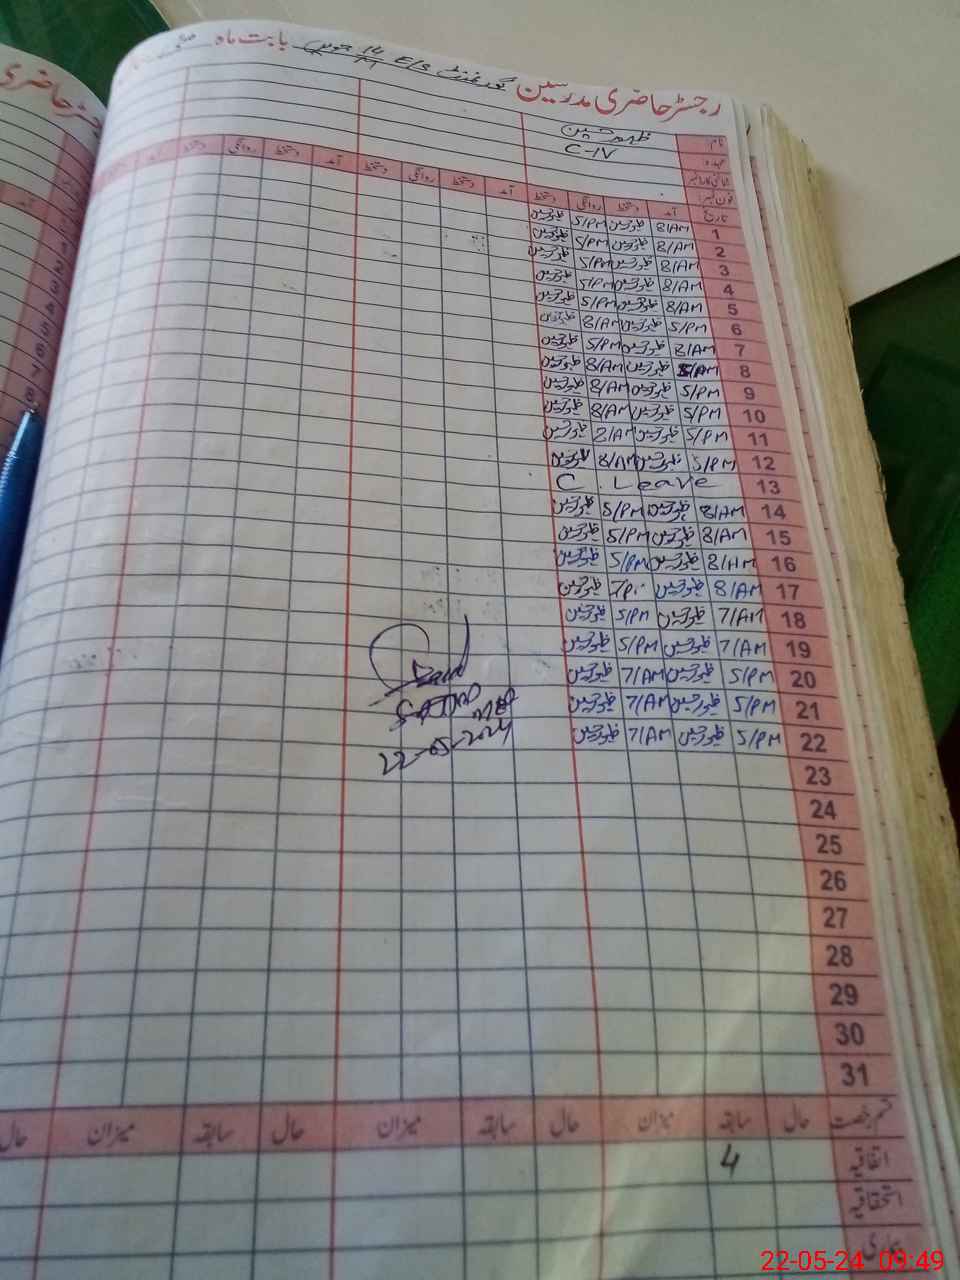 رجسٹر حاضری مدرسین گورنمنٹ E/S 14/M بابت ماہ
نام ظہور حسین
عہدہ C-IV
شناختی کارڈ نمبر
فون نمبر
تاریخ آمد دستخط روانگی دستخط آمد دستخط روانگی دستخط آمد دستخط روانگی دستخط آمد
1 8/AM ظہور حسین 5/PM ظہور حسین
2 8/AM ظہور حسین 5/PM ظہور حسین
3 8/AM ظہور حسین 5/PM ظہور حسین
4 8/AM ظہور حسین 5/PM ظہور حسین
5 8/AM ظہور حسین 5/PM ظہور حسین
6 5/PM ظہور حسین 8/AM ظہور حسین
7 8/AM ظہور حسین 5/PM ظہور حسین
8 8/AM ظہور حسین 8/AM ظہور حسین
9 5/PM ظہور حسین 8/AM ظہور حسین
10 5/PM ظہور حسین 8/AM ظہور حسین
11 5/PM ظہور حسین 8/AM ظہور حسین
12 5/PM ظہور حسین 8/AM ظہور حسین
13 C. Leave
14 8/AM ظہور حسین 5/PM ظہور حسین
15 8/AM ظہور حسین 5/PM ظہور حسین
16 8/AM ظہور حسین 5/PM ظہور حسین
17 8/AM ظہور حسین ظہور حسین
18 7/AM ظہور حسین 5/PM ظہور حسین
19 7/AM ظہور حسین 5/PM ظہور حسین
20 5/PM ظہور حسین 7/AM ظہور حسین
21 5/PM ظہور حسین 7/AM ظہور حسین
22 5/PM ظہور حسین 7/AM ظہور حسین
22-05-2024
23
24
25
26
27
28
29
30
31
قسم رخصت حال سابقہ میزان حال سابقہ میزان حال سابقہ میزان حال
اتفاقیہ 4
استحقاقیہ
بیماری
22-05-24 09:49